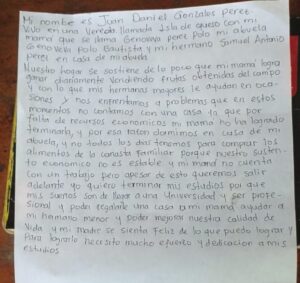 Mi nombre es Juan Daniel Gonzales perez.
Vivo en una Vereda llamada Isla de queso con mi
mama que se llama Genoveva perez Polo mi abuela
Genoveva Polo Bautista y mi hermano Samuel Antonio
perez en casa de mi abuela
Nuestro hogar se sostiene de lo poco que mi mama logra
ganar diariamente Vendiendo frutas obtenidas del campo
y con lo que mis hermanas mayores le ayudan en oca-
siones y nos enfrentamos a problemas que en estos
momentos no contamos con una casa ya que por
falta de recursos economicos mi mama no ha logrado
terminarla, y por esa razon dormimos en casa de mi
abuela, y no todos los dias tenemos para comprar los
alimentos de la canasta familiar porque nuestro susten-
to economico no es estable y mi mama no cuenta
con un trabajo pero apesar de esto queremos salir
adelante yo quiero terminar mis estudios por que
mis sueños son de llegar a una Universidad y ser profe-
sional y poder regalarle una casa a mi mama ayudar a
mi hermano menor y poder mejorar nuestra calidad de
Vida y mi madre se sienta Feliz de lo que puedo lograr y
Para lograrlo necesito mucho esfuerzo y dedicacion a mis
estudios